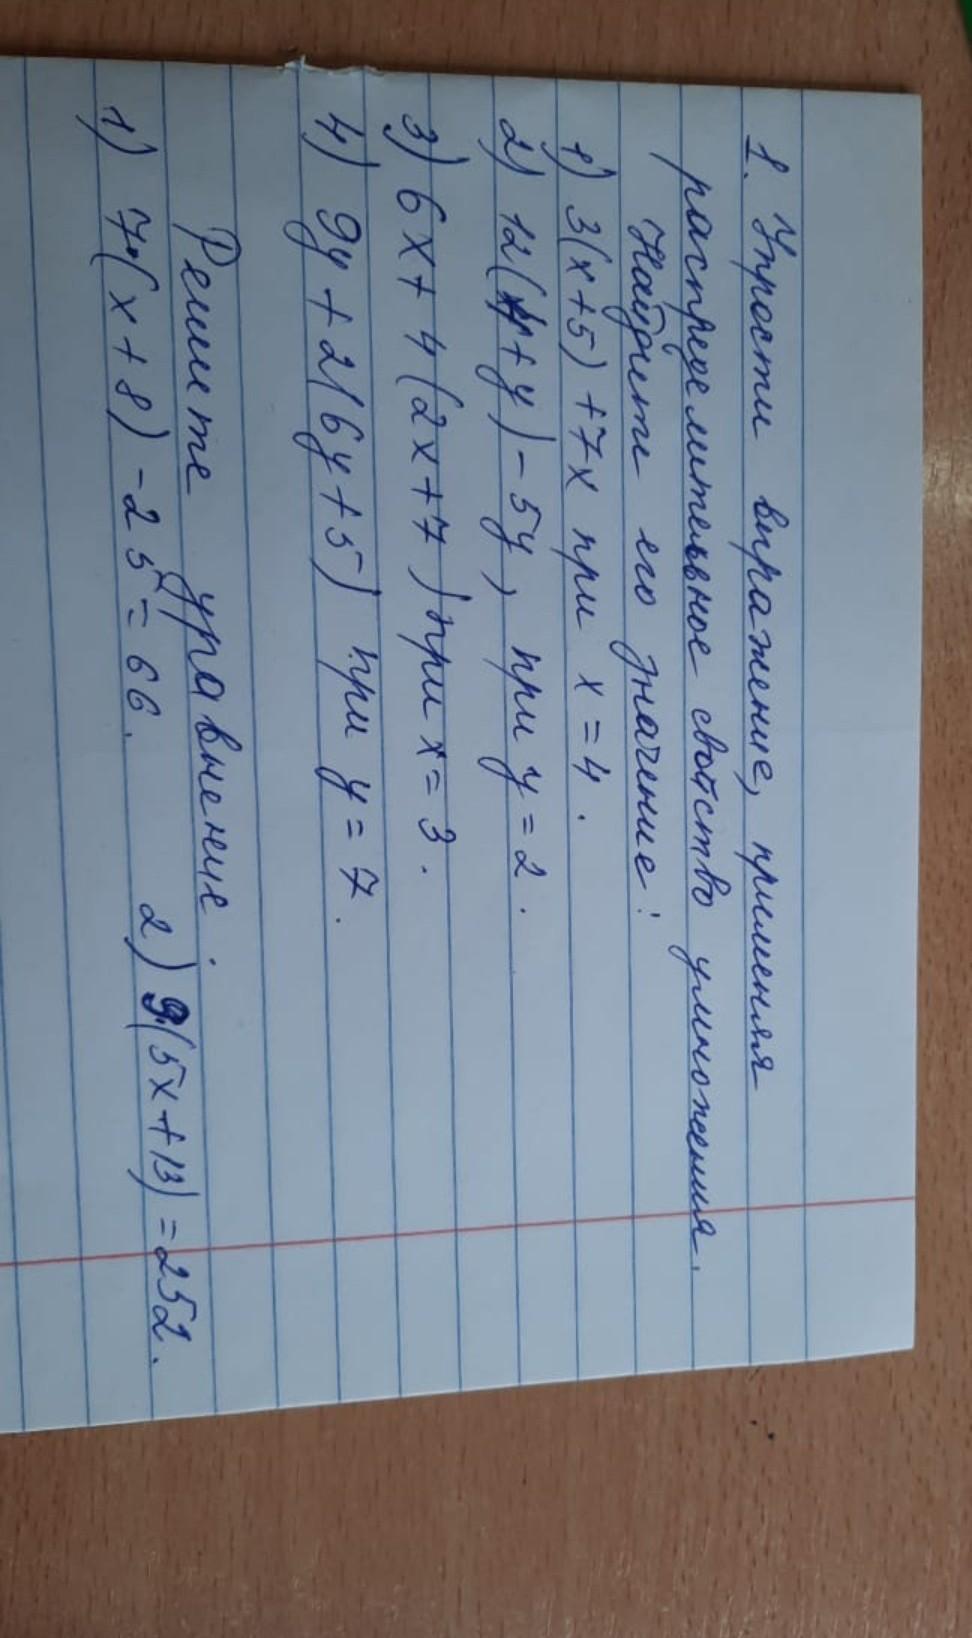 1. Упрости выражение, применяя
распределительное свойство умножения.
Найдите его значение:
1) 3(x+5)+7x при x=4.
2) 12(4+y)-5y, при y=2.
3) 6x+4(2x+7) при x=3.
4) 9y+2(6y+5) при y=7.
Решите уравнение.
1) 7·(x+8)-25=66. 2) 9·(5x+13)=252.